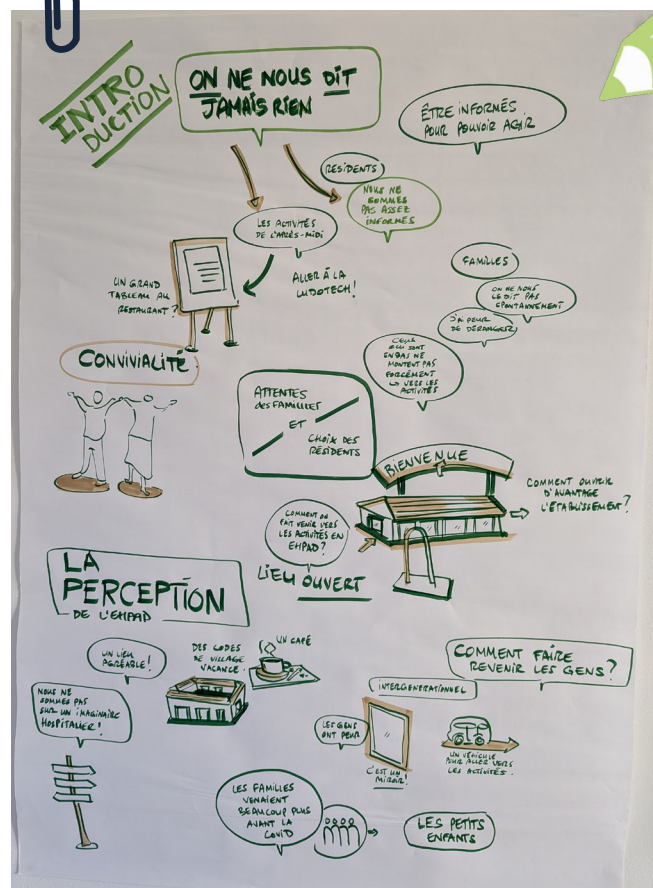 INTRO
DUCTION
ON NE NOUS DIT
JAMAIS RIEN
ÊTRE INFORMÉS
POUR POUVOIR AGIR
RESIDENTS
NOUS NE
SOMMES
PAS ASSEZ
INFORMÉS
LES ACTIVITÉS
DE L'APRÈS-MIDI
UN GRAND
TABLEAU AU
RESTAURANT?
ALLER À LA
LUDOTECH!
FAMILLES
ON NE NOUS
LE DIT PAS
SPONTANNEMENT
J'AI PEUR
DE DÉRANGER
CEUX
QUI SONT
EN BAS NE
MONTENT PAS
FORCÉMENT
↳ VERS LES
ACTIVITÉS
CONVIVIALITÉ
ATTENTES
des FAMILLES
ET
CHOIX DES
RÉSIDENTS
BIENVENUE
COMMENT OUVRIR
D'AVANTAGE
L'ÉTABLISSEMENT?
COMMENT ON
FAIT VENIR VERS
LES ACTIVITÉS EN
EHPAD?
LIEU OUVERT
LA
PERCEPTION
DE L'EHPAD
UN LIEU
AGRÉABLE!
DES CODES
DE VILLAGE
VACANCE.
UN CAFÉ
NOUS NE
SOMMES PAS
SUR UN IMAGINAIRE
HOSPITALIER!
COMMENT FAIRE
REVENIR LES GENS?
INTERGENERATIONNEL
LES GENS
ONT PEUR
C'EST UN
MIROIR!
UN VÉHICULE
POUR ALLER VERS
LES ACTIVITÉS.
LES FAMILLES
VENAIENT
BEAUCOUP PLUS
AVANT LA
COVID
LES PETITS
ENFANTS